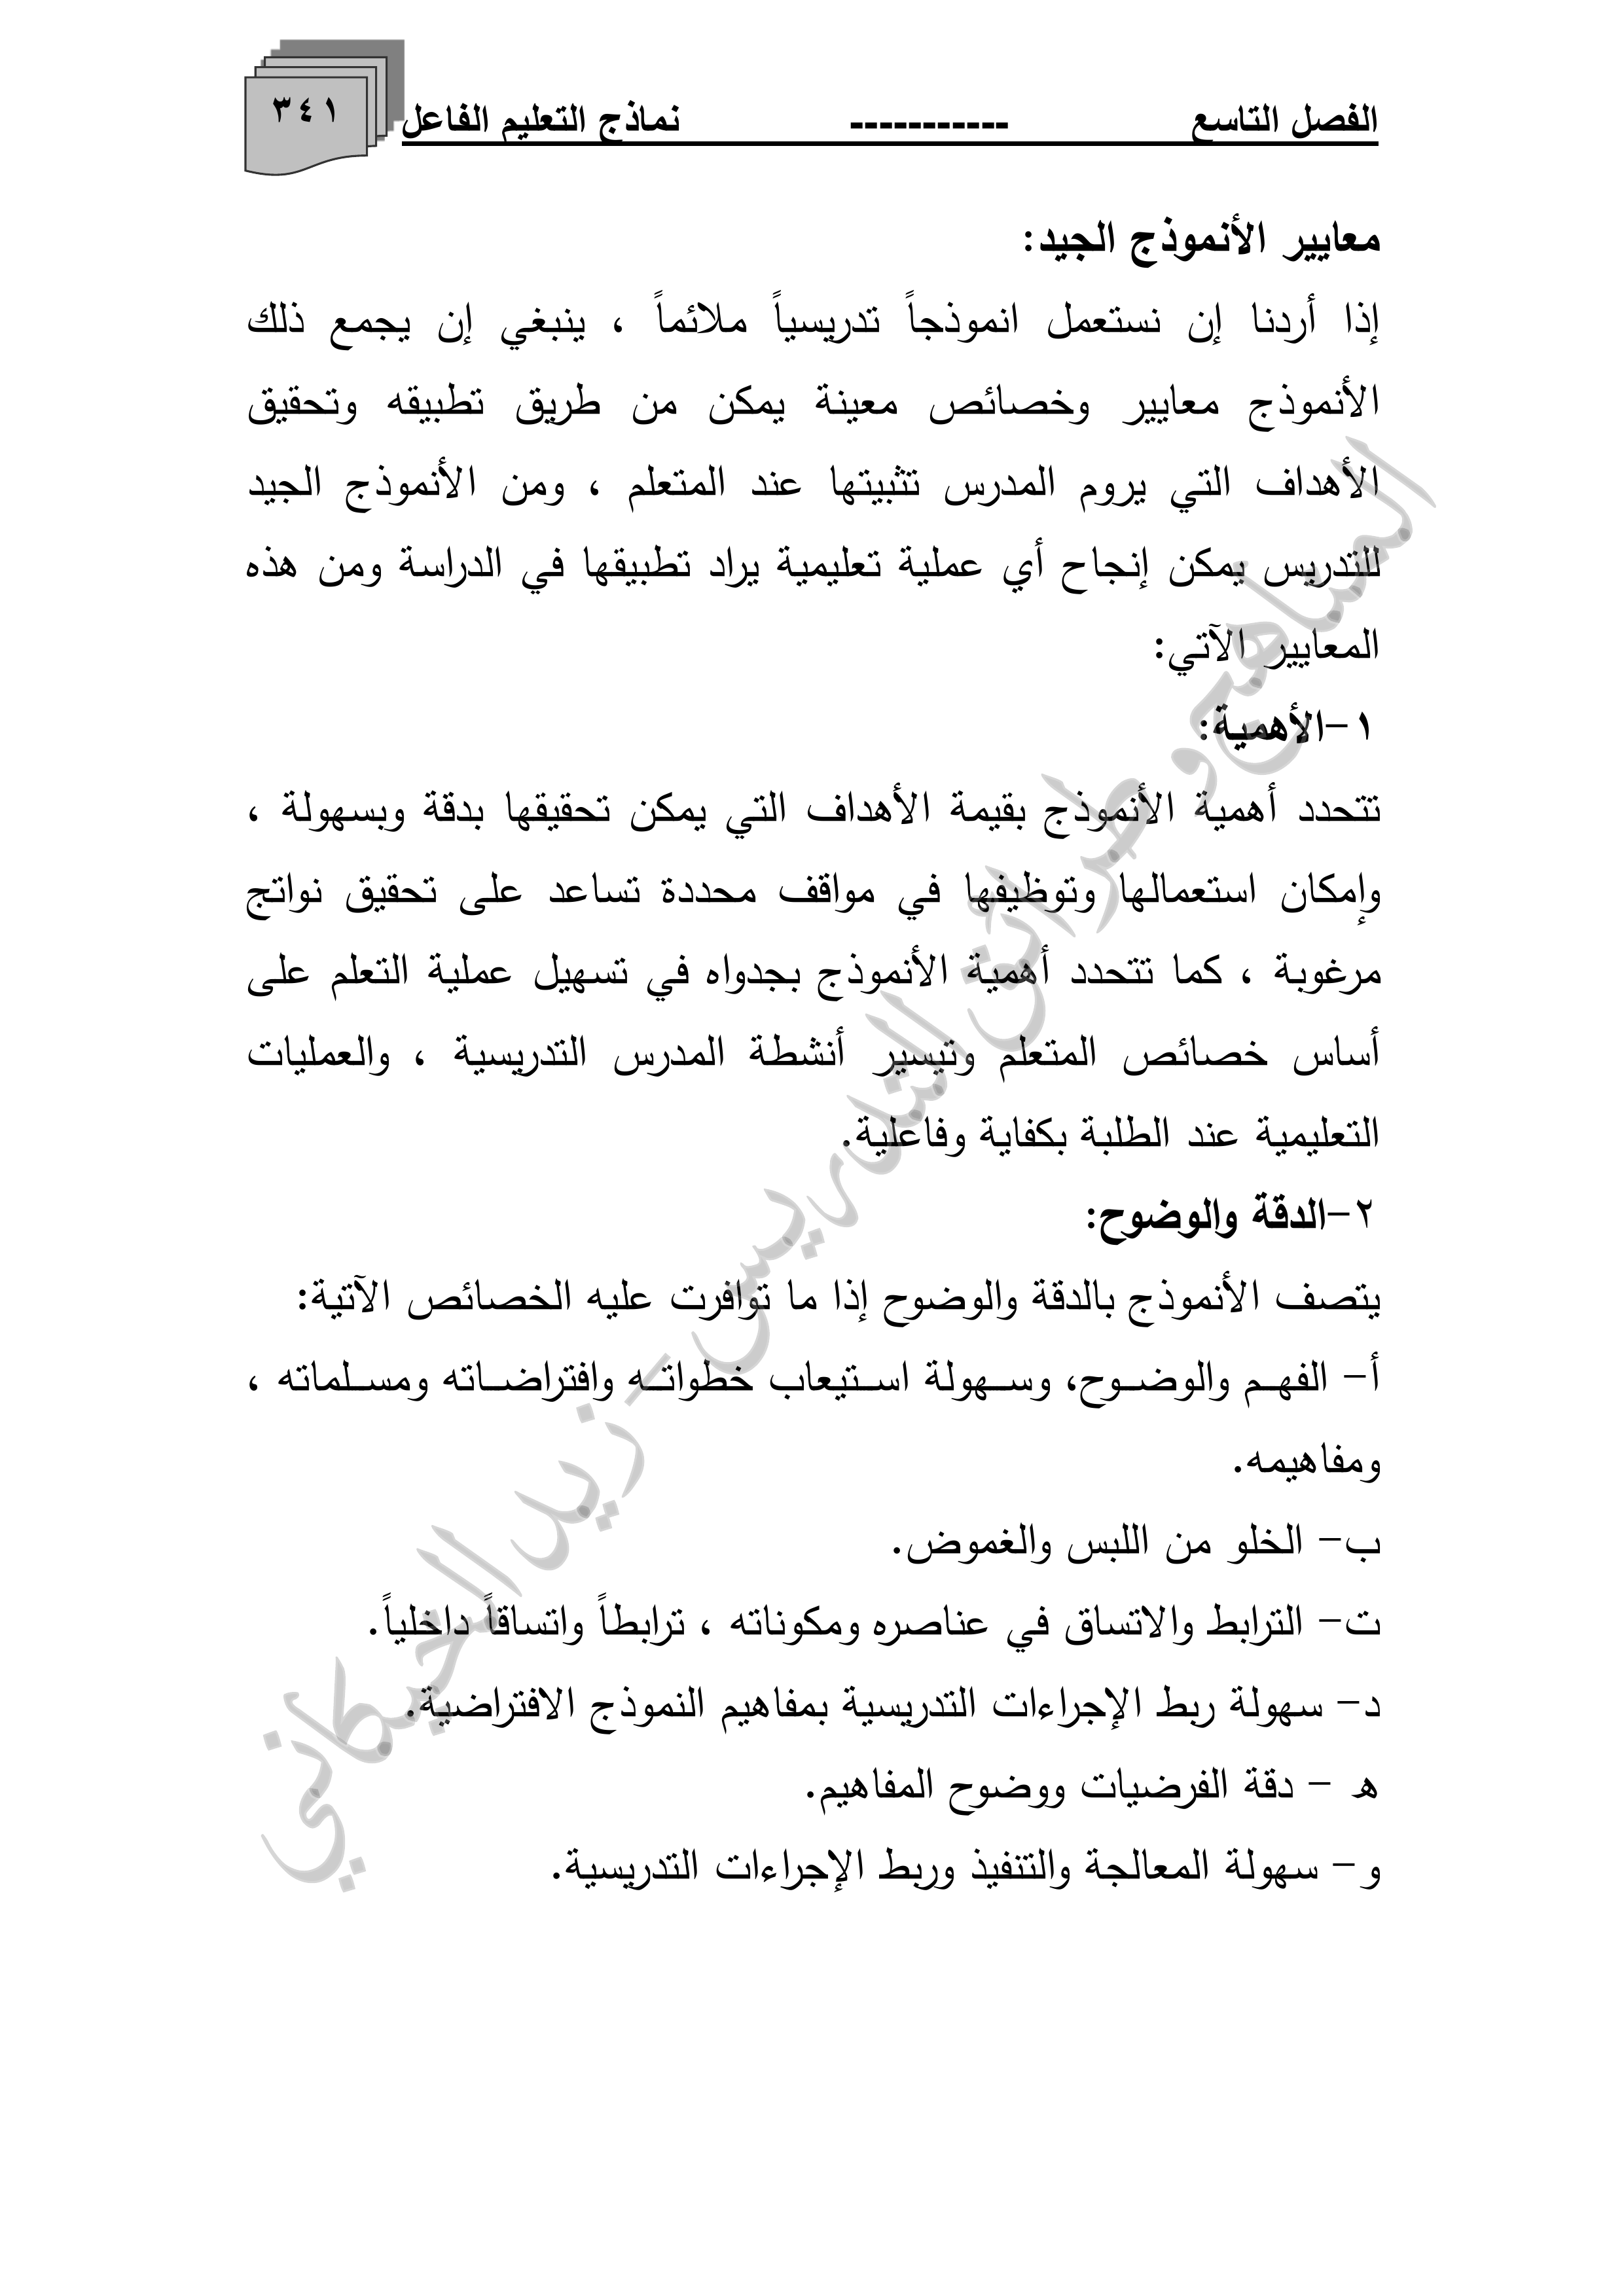 الفصل التاسع ----------- نماذج التعليم الفاعل
٣٤١
معايير الأنموذج الجيد:
إذا أردنا إن نستعمل انموذجاً تدريسياً ملائماً ، ينبغي إن يجمع ذلك
الأنموذج معايير وخصائص معينة يمكن من طريق تطبيقه وتحقيق
الأهداف التي يروم المدرس تثبيتها عند المتعلم ، ومن الأنموذج الجيد
للتدريس يمكن إنجاح أي عملية تعليمية يراد تطبيقها في الدراسة ومن هذه
المعايير الآتي:
١-الأهمية:
تتحدد أهمية الأنموذج بقيمة الأهداف التي يمكن تحقيقها بدقة وبسهولة ،
وإمكان استعمالها وتوظيفها في مواقف محددة تساعد على تحقيق نواتج
مرغوبة ، كما تتحدد أهمية الأنموذج بجدواه في تسهيل عملية التعلم على
أساس خصائص المتعلم وتيسير أنشطة المدرس التدريسية ، والعمليات
التعليمية عند الطلبة بكفاية وفاعلية.
٢-الدقة والوضوح:
يتصف الأنموذج بالدقة والوضوح إذا ما توافرت عليه الخصائص الآتية:
أ- الفهم والوضوح، وسهولة استيعاب خطواته وافتراضاته ومسلماته ،
ومفاهيمه.
ب- الخلو من اللبس والغموض.
ت- الترابط والاتساق في عناصره ومكوناته ، ترابطاً واتساقاً داخلياً.
د- سهولة ربط الإجراءات التدريسية بمفاهيم النموذج الافتراضية.
هـ - دقة الفرضيات ووضوح المفاهيم.
و- سهولة المعالجة والتنفيذ وربط الإجراءات التدريسية.
المناهج وطرائق التدريس - زيد الخيكاني